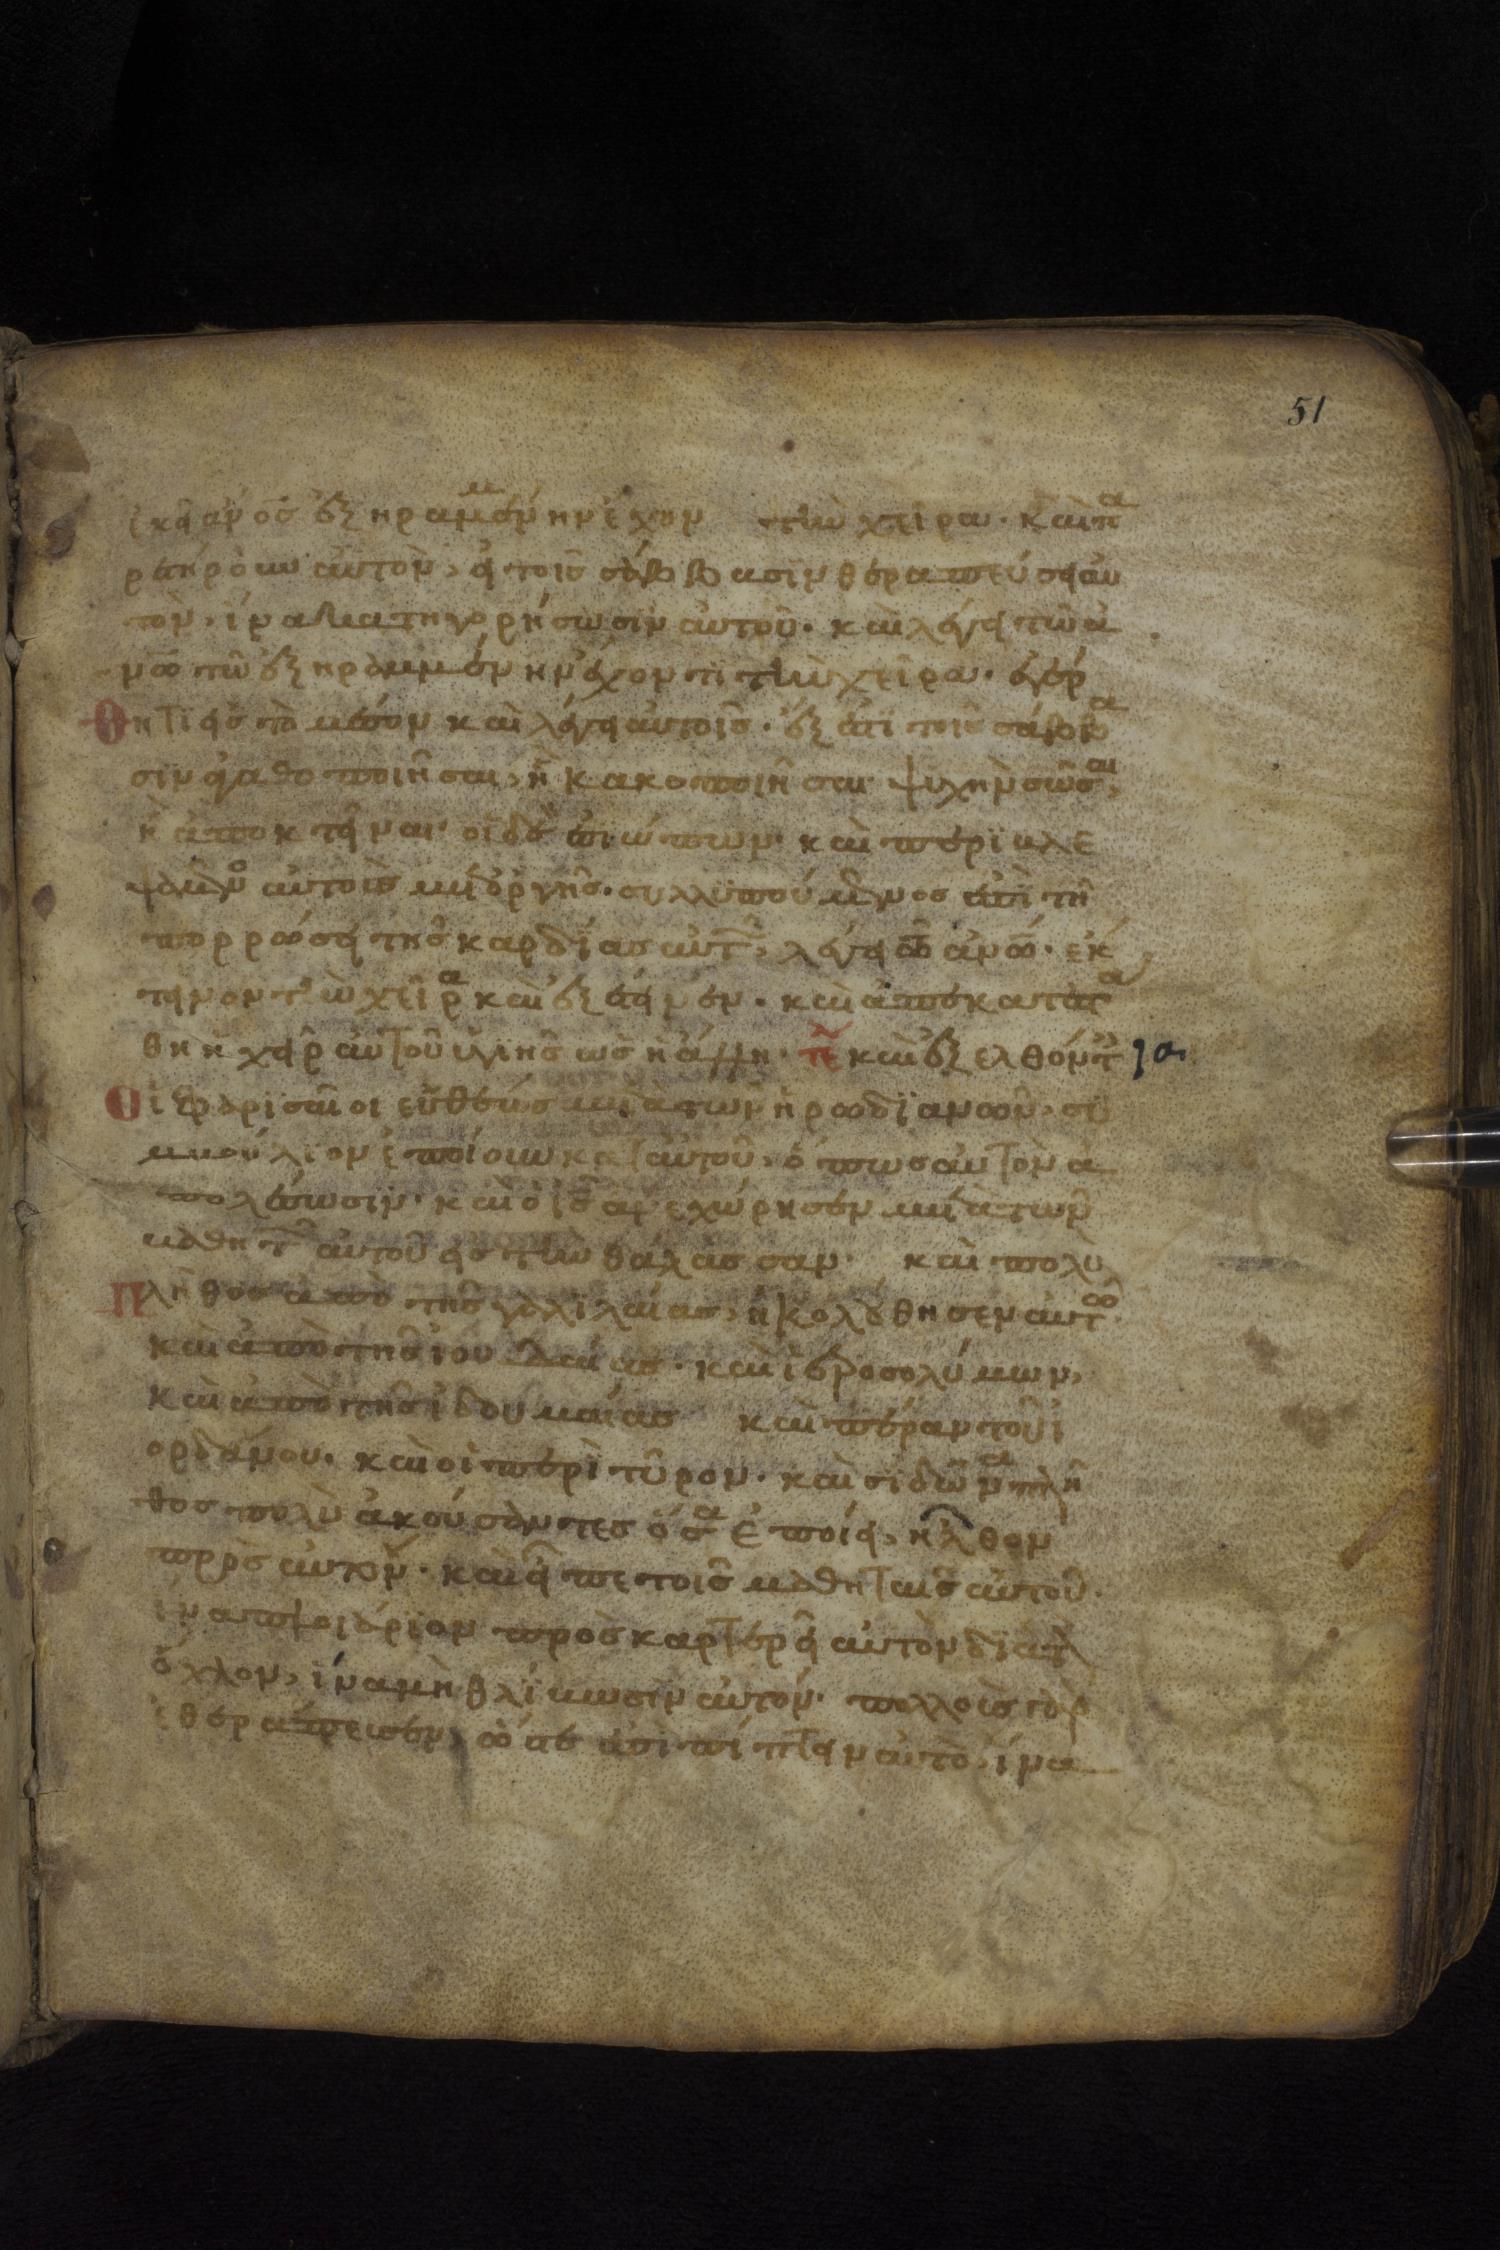 51
ἐκεῖ ἄνος ἐξηραμμένην ἔχων τὴν χεῖρα· καὶ πα
ρετήρουν αὐτὸν, εἰ τοῖς σάββασϊν θεραπεύσει αὐ
τὸν· ἵνα κατηγορήσωσϊν αὐτοῦ· καὶ λέγει τῶ ἀ
νω τῶ ἐξηραμμένην ἔχοντι τὴν χεῖρα· ἔγερ
θητϊ εἰς τὸ μέσον καὶ λέγει αὐτοῖς· ἔξεστϊ τοῖς σάββα
σϊν ἀγαθοποιῆσαι, ἢ κακοποιῆσαι· ψυχὴν σῶσαι,
ἢ ἀποκτεῖναι· οἱ δὲ ἐσιώπων· καὶ περϊβλε
ψάμενος αὐτοὺς μετ ὀργῆς· συλλυπούμενος ἐπὶ τῆ
πορρώσει τῆς καρδίας αὐτῶν, λέγει τῶ ἀνω· ἔκ
τεινον τὴν χεῖρα καὶ ἐξέτεινεν· καὶ ἀποκατεστα
θη ἡ χεὶρ αὐτοῦ ὑγιὴς ὡς ἡ ἄλλη· τε καὶ ἐξελθόντ
οἱ Φαρϊσαῖοι εὐθέως μετὰ τῶν ἡρωδϊανῶν, συ
μβούλϊον ἐποίουν κατ αὐτοῦ, ὅπως αὐτὸν ἀ
πολέσωσϊν· καὶ ὁ ις ἀνεχώρησεν μετὰ τῶν
μαθητῶν αὐτοῦ εἰς τὴν θάλασσαν· καὶ πολὺ
πλῆθος ἀπὸ τῆς γαλϊλαίας, ἠκολούθησεν αὐτῶ
καὶ ἀπὸ τῆς ἰουδαίας· καὶ ἱεροσολύμων,
καὶ ἀπὸ τῆς ἰδουμαίας καὶ πέραν τοῦ ἰ
ορδάνου· καὶ οἱ περὶ τῦρον· καὶ σϊδῶνα πλῆ
θος πολὺ ἀκούσαντες ὅσα ἐποίει, ἦλθον
πρὸς αὐτὸν· καὶ εἶπε τοῖς μαθηταῖς αὐτοῦ·
ἵνα πλοιάρϊον προσκαρτερῆ αὐτὸν δϊὰ τὸν
ὄχλον, ἵνα μὴ θλίβωσϊν αὐτόν· πολλοὺς γὰρ
ἐθεράπευσεν, ὥστε ἐπιπίπτειν αὐτὸ, ἵνα